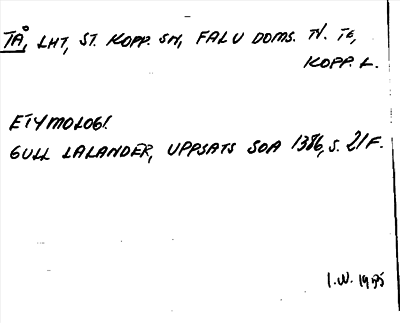 TÅ, LHT, ST. KOPP. SN, FALU DOMS. TV. TG,
KOPP. L.
ETYMOLOGI.
GULL LALANDER, UPPSATS SOA 1386, S. 21 F.
I.W. 1975